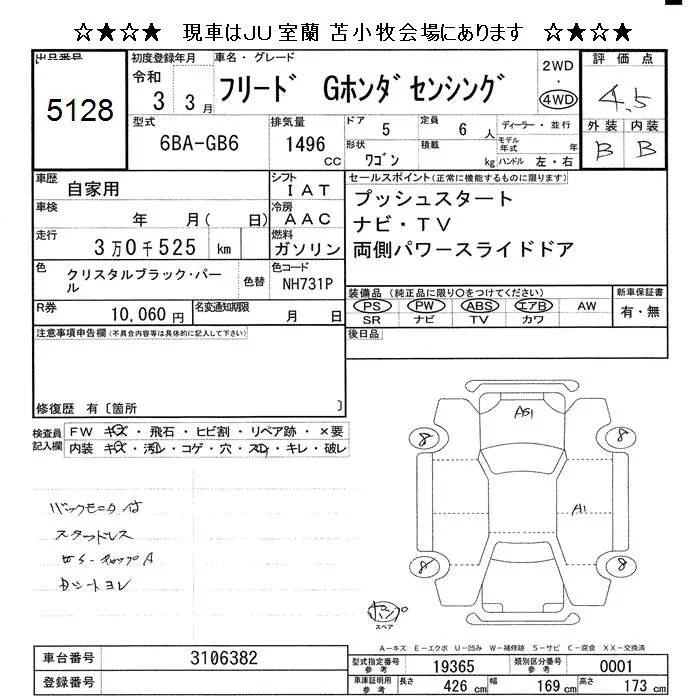 ☆★☆★ 現車はJU室蘭 苫小牧会場にあります ☆★☆★
出品番号
5128
初度登録年月
令和
3 3月
車名・グレード
フリード Gホンダセンシング
2WD
・
4WD
評価点
4.5
外装 内装
B B
型式
6BA-GB6
排気量
1496
cc
ドア
5
定員
6人
ディーラー・並行
形状
ワゴン
積載
kg
モデル年式
年
ハンドル 左・右
車歴
自家用
シフト
IAT
車検
年 月( 日)
冷房
AAC
走行
3万0千525 km
燃料
ガソリン
色
クリスタルブラック・パール
色替
色コード
NH731P
R券
10,060円
名変通知期限
月 日
セールスポイント(正常に機能するものに限ります)
プッシュスタート
ナビ・TV
両側パワースライドドア
装備品(純正品に限り〇をつけてください)
PS PW ABS エアB AW
SR ナビ TV カワ
新車保証書
有・無
注意事項申告欄(不具合内容等は具体的に記入して下さい)
後日品
修復歴 有〔箇所 〕
検査員記入欄
FW キズ・飛石・ヒビ割・リペア跡・×要
内装 キズ・汚レ・コゲ・穴・スレ・キレ・破レ
バックモニタ付
スタッドレス
Dシートヨレ
A51
A1
8
8
8
8
スペア
A-キズ E-エクボ U-凹み W-補修跡 S-サビ C-腐食 XX-交換済
車台番号
3106382
登録番号
型式指定番号
参考
19365
類別区分番号
参考
0001
車庫証明用
参考
長さ
426 cm
幅
169 cm
高さ
173 cm